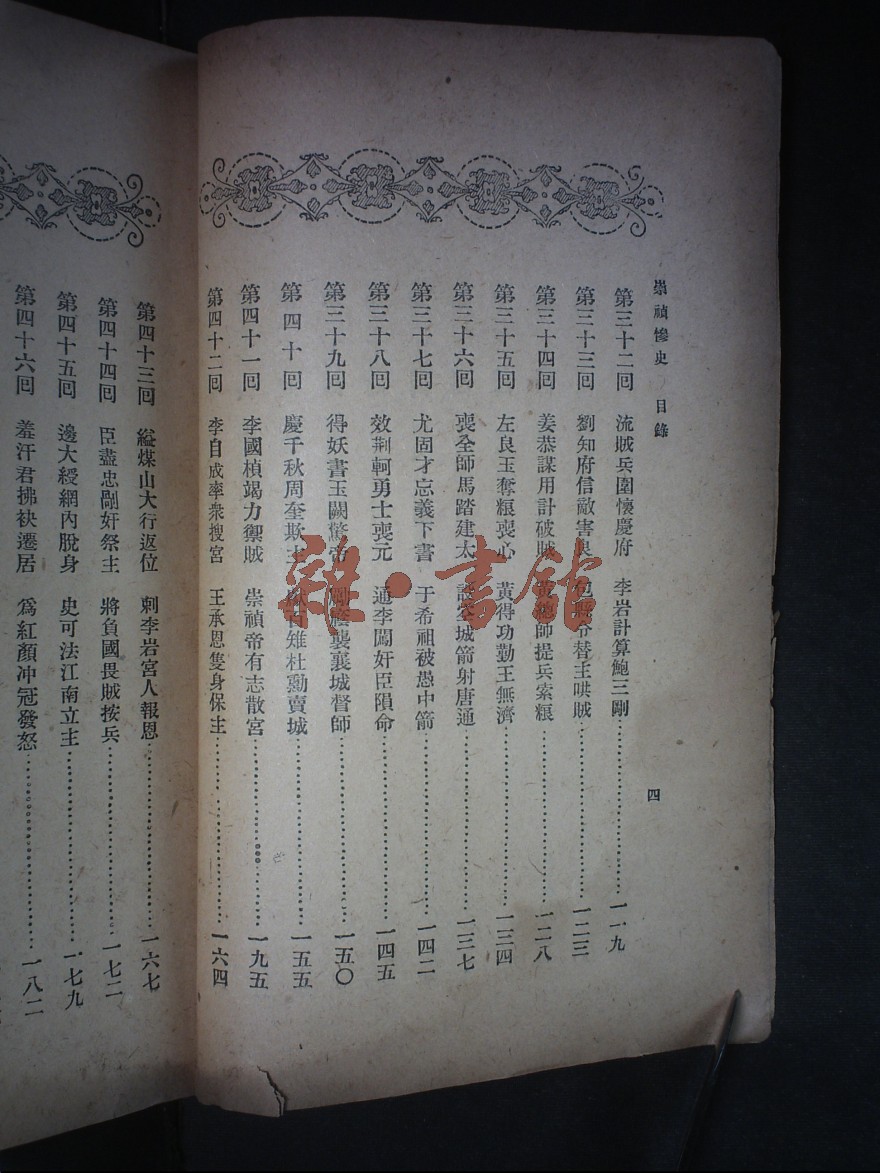 崇禎慘史 目錄 四
第三十二回 流賊兵圍懷慶府 李岩計算鮑三剛 一一九
第三十三回 劉知府信敵害良 包縣令替主哄賊 一二三
第三十四回 姜恭謀用計破賊 黃總師提兵索糧 一二八
第三十五回 左良玉奪糧喪心 黃得功勤王無濟 一三四
第三十六回 喪全師馬踏建太 全城箭射唐通 一三七
第三十七回 尤固才忘義下書 于希祖被愚中箭 一四二
第三十八回 效荆軻勇士喪元 通李闖奸臣隕命 一四五
第三十九回 得妖書玉闕驚帝 襲襄城督師 一五〇
第四十回 慶千秋周奎欺主 百雉杜勳賣城 一五五
第四十一回 李國楨竭力禦賊 崇禎帝有志散宮 一九五
第四十二回 李自成率衆搜宮 王承恩隻身保主 一六四
第四十三回 縊煤山大行返位 刺李岩宮人報恩 一六七
第四十四回 臣盡忠剮奸祭主 將負國畏賊按兵 一七二
第四十五回 邊大綬網內脫身 史可法江南立主 一七九
第四十六回 羞汗君拂袂遷居 爲紅顏冲冠發怒 一八二
雜·書館